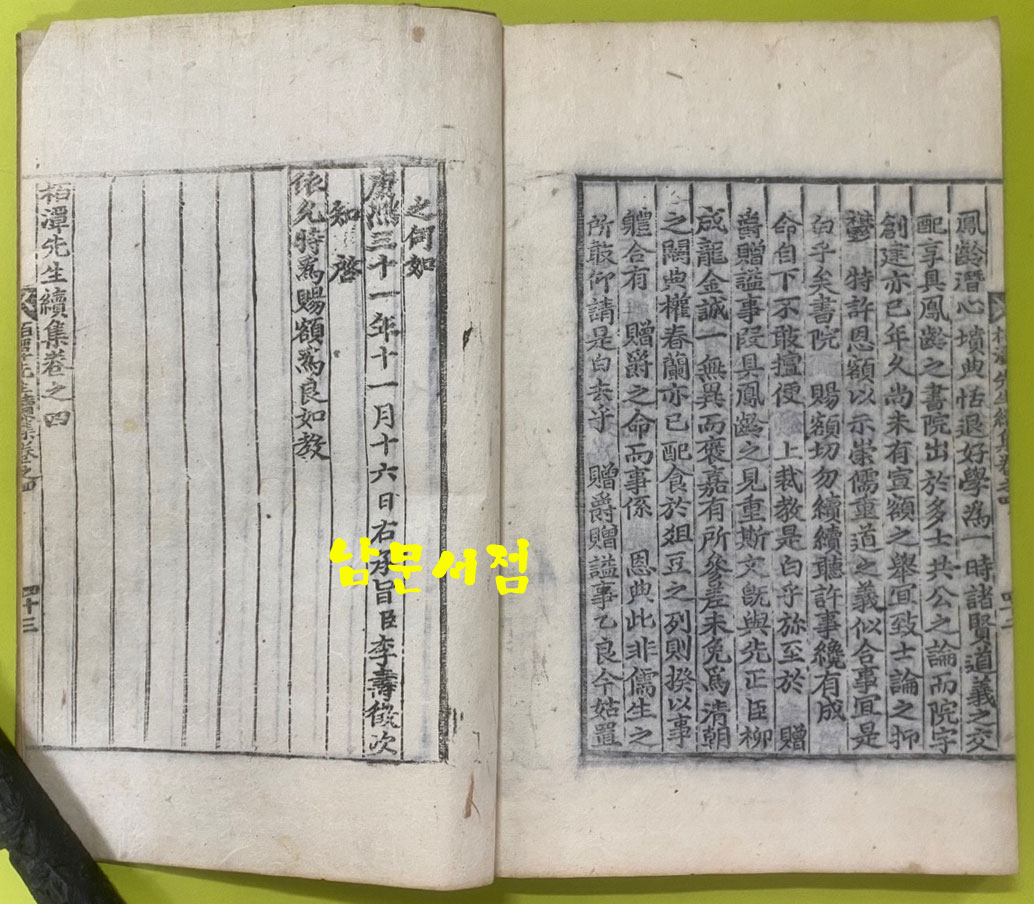 鳳齡潛心墳典恬退好學爲一時諸賢道義之交
配享具鳳齡之書院出於多士共公之論而院宇
創建亦已年久尚未有宣額之舉宜致士論之抑
鬱 特許恩額以示崇儒重道之義似合事宜是
白乎矣書院 賜額切勿續續聽許事纔有成
命自下不敢擅便 上裁教是白乎旀至於 贈
爵贈諡事段具鳳齡之見重斯文旣與先正臣柳
成龍金誠一無異而褒嘉有所參差未免爲清朝
之闕典權春蘭亦已配食於俎豆之列則揆以事
體合有 贈爵之命而事係 恩典此非儒生之
所敢仰請是白去乎 贈爵贈諡事乙良今姑置
栢潭先生續集卷之四
四十二
之何如
康熙三十一年十一月十六日右承旨臣李壽徵次
知 啓
依允特爲賜額爲良如教
栢潭先生續集卷之四
栢潭先生續集卷之四
四十三
남문서점